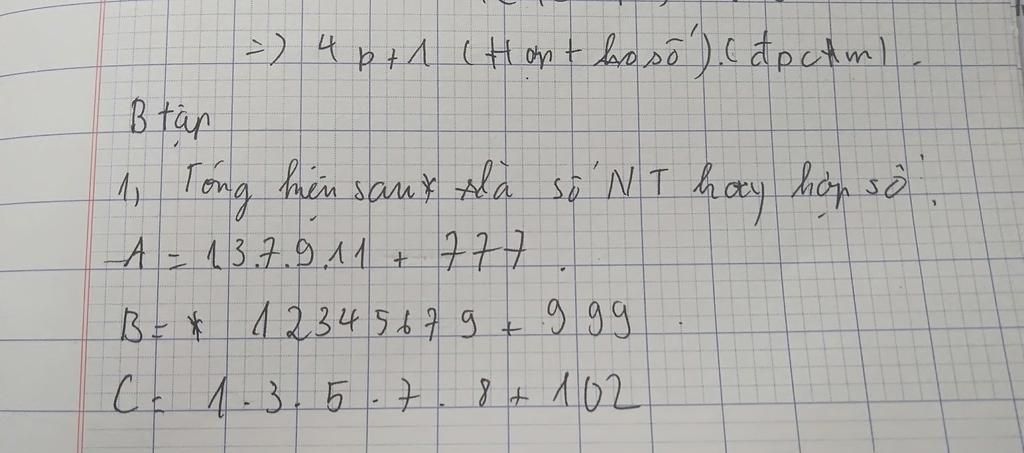 => 4p+1 (Hợp số). (đpctm).
B tập
1, Tổng hiệu sau là số NT hay hợp số.
A = 13.7.9.11 + 777.
B = * 12345679 + 999.
C = 1.3.5.7.8 + 102